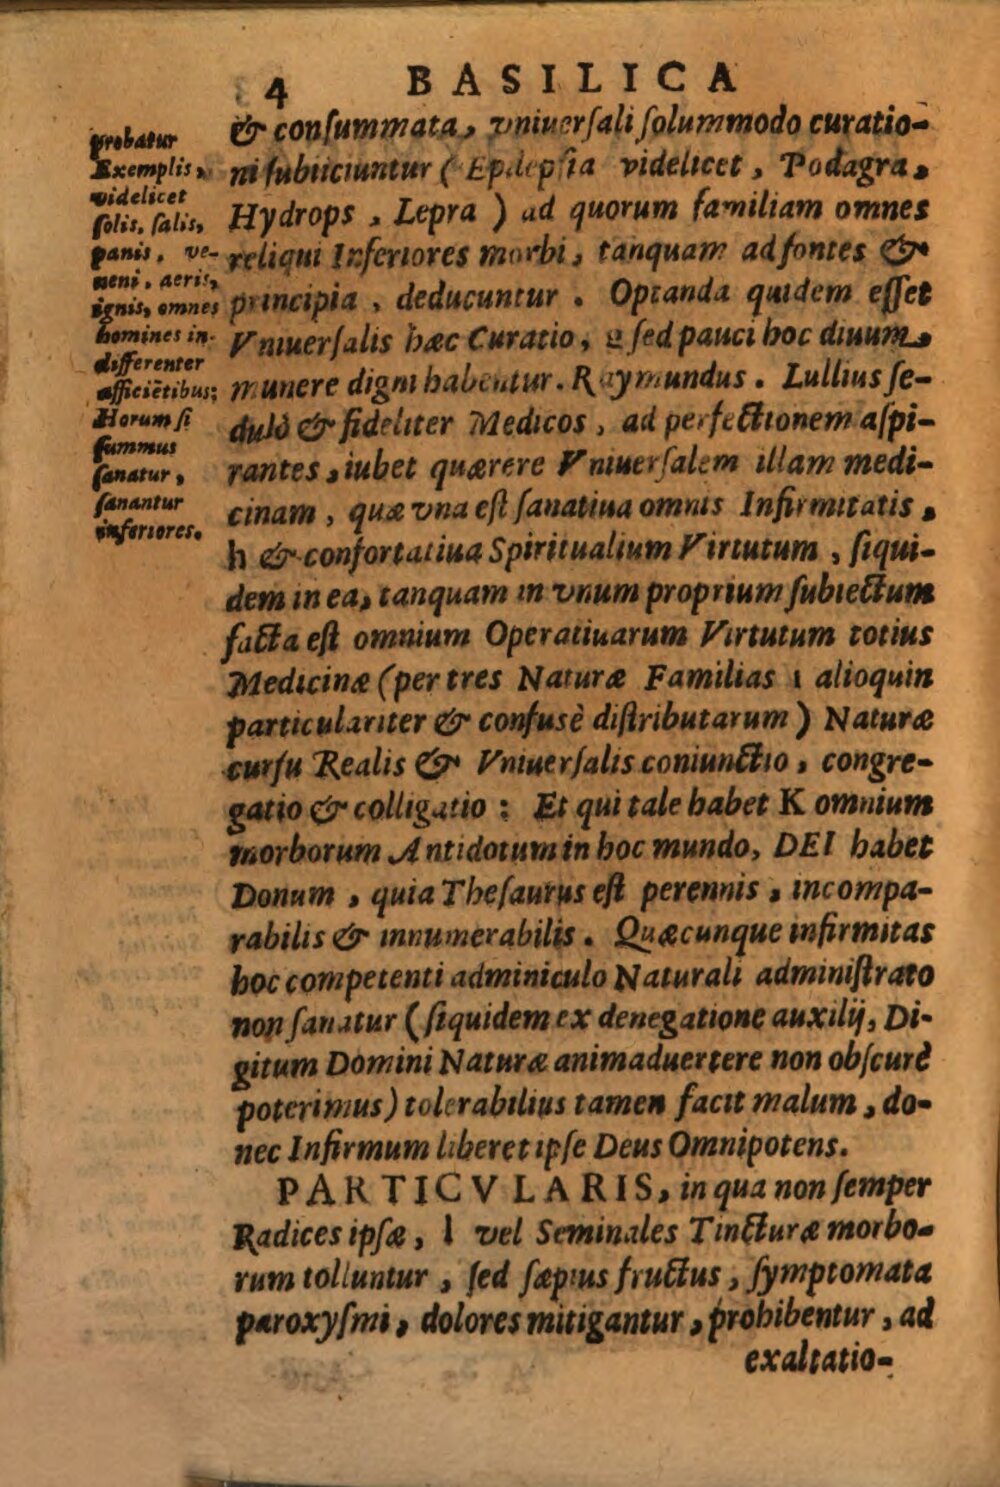 4 BASILICA
probatur
Exemplis,
videlicet
ſolis, ſalis,
panis, ve-
neni, aeris,
ignis, omnes
homines in-
differenter
afficiẽtibus;
Horum ſi
ſummus
ſanatur,
ſanantur
inferiores.
& conſummata, vniuerſali ſolummodo curatio-
ni ſubiiciuntur (Epilepſia videlicet, Podagra,
Hydrops, Lepra) ad quorum familiam omnes
reliqui Inferiores morbi, tanquam ad fontes &
principia, deducuntur. Optanda quidem eſſet
Vniuerſalis hæc Curatio, g ſed pauci hoc diuum,
munere digni habentur. Raymundus. Lullius ſe-
dulò & fideliter Medicos, ad perfectionem aſpi-
rantes, iubet quærere Vniuerſalem illam medi-
cinam, quæ vna eſt ſanatiua omnis Infirmitatis,
h & confortatiua Spiritualium Virtutum, ſiqui-
dem in ea, tanquam in vnum proprium ſubiectum
facta eſt omnium Operatiuarum Virtutum totius
Medicinæ (per tres Naturæ Familias i alioquin
particulariter & confusè diſtributarum) Naturæ
curſu Realis & Vniuerſalis coniunctio, congre-
gatio & colligatio: Et qui tale habet K omnium
morborum Antidotum in hoc mundo, DEI habet
Donum, quia Theſaurus eſt perennis, incompa-
rabilis & innumerabilis. Quæcunque infirmitas
hoc competenti adminiculo Naturali adminiſtrato
non ſanatur (ſiquidem ex denegatione auxilij, Di-
gitum Domini Naturæ animaduertere non obſcurè
poterimus) tolerabilius tamen facit malum, do-
nec Infirmum liberet ipſe Deus Omnipotens.
PARTICVLARIS, in qua non ſemper
Radices ipſæ, l vel Seminales Tincturæ morbo-
rum tolluntur, ſed ſæpius fructus, ſymptomata
paroxyſmi, dolores mitigantur, prohibentur, ad
exaltatio-